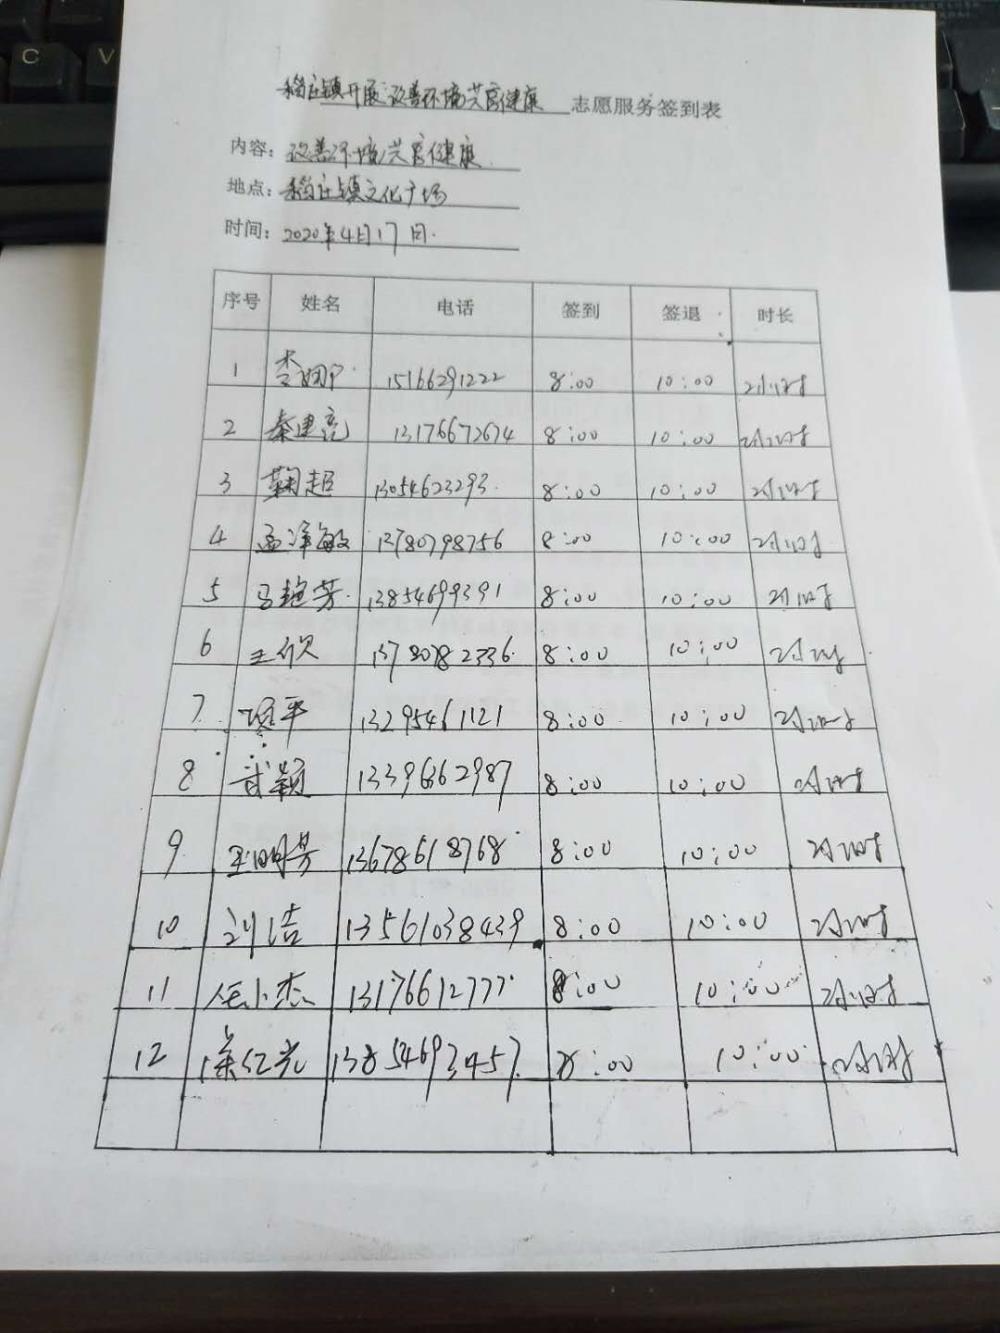 稻庄镇开展改善环境共享健康 志愿服务签到表
内容：改善环境共享健康
地点：稻庄镇文化广场
时间：2020年4月17日.
序号 姓名 电话 签到 签退 时长
1 李娜 15166291222 8:00 10:00 2小时
2 秦建亮 13176672674 8:00 10:00 2小时
3 鞠超 13054623293. 8:00 10:00 2小时
4 孟泽敏 13780798756 8:00 10:00 2小时
5 马艳芳 13854699391 8:00 10:00 2小时
6 王欣 13780782336. 8:00 10:00 2小时
7 平 13295461121 8:00 10:00 2小时
8 武颖 13396362987 8:00 10:00 2小时
9 王明芳 13678618768 8:00 10:00 2小时
10 刘洁 13561038439 8:00 10:00 2小时
11 任小杰 13176612777 8:00 10:00 2小时
12 红光 13854693457. 8:00 10:00 2小时